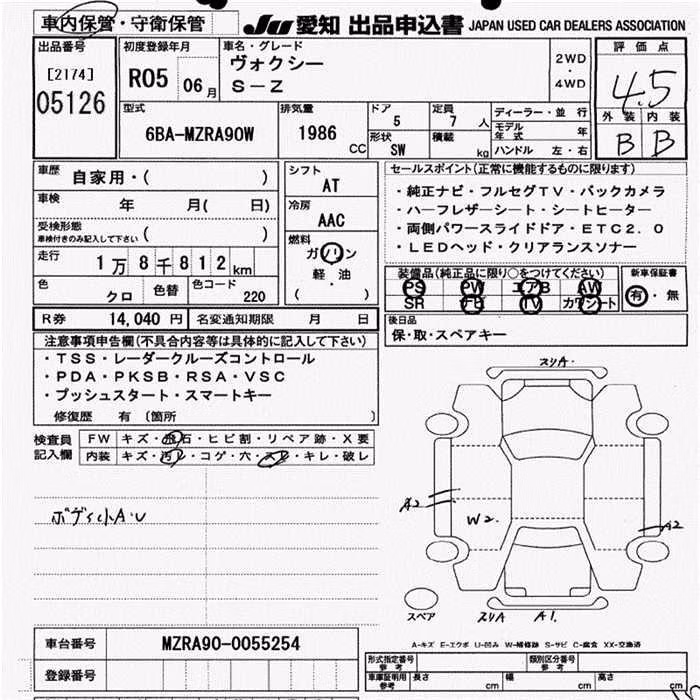 車内保管・守衛保管
JU 愛知 出品申込書 JAPAN USED CAR DEALERS ASSOCIATION
出品番号
[2174]
05126
初度登録年月
R05 06月
車名・グレード
ヴォクシー
S－Z
2WD
・
4WD
評価点
4.5
外装 内装
B B
型式
6BA-MZRA90W
排気量
1986
CC
ドア
5
形状
SW
定員
7 人
積載
kg
ディーラー・並行
モデル年式 年
ハンドル 左・右
車歴
自家用・( )
車検
年 月( 日)
受検形態
車検付きのみ記入して下さい ( )
走行
1万8千812km
色
クロ
色替
色コード
220
シフト
AT
冷房
AAC
燃料
ガソリン
軽・油
( )
R券 14,040円 名変通知期限 月 日
セールスポイント(正常に機能するものに限ります)
・純正ナビ・フルセグTV・バックカメラ
・ハーフレザーシート・シートヒーター
・両側パワースライドドア・ETC2.0
・LEDヘッド・クリアランスソナー
装備品(純正品に限り○をつけてください)
PS PW エアB AW
SR ナビ TV カワシート
新車保証書
有・無
後日品
保・取・スペアキー
注意事項申告欄(不具合内容等は具体的に記入して下さい)
・TSS・レーダークルーズコントロール
・PDA・PKSB・RSA・VSC
・プッシュスタート・スマートキー
修復歴 有 〔箇所 〕
検査員記入欄
FW キズ・飛石・ヒビ割・リペア跡・X要
内装 キズ・汚レ・コゲ・穴・スレ・キレ・破レ
ボディ小A・U
スリA・
A2
W2.
A2
スペア
スリA A1.
A-キズ E-エクボ U-凹み W-補修跡 S-サビ C-腐食 XX-交換済
車台番号
MZRA90-0055254
登録番号
形式指定番号 参考
類別区分番号 参考
車庫証明用 参考
長さ cm 幅 cm 高さ cm